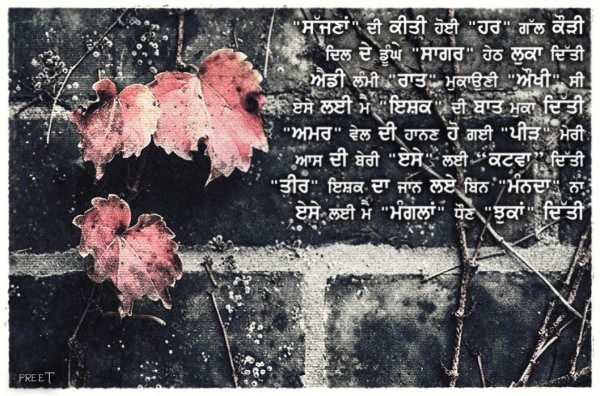 "ਸੱਜਣਾਂ" ਦੀ ਕੀਤੀ ਹੋਈ "ਹਰ" ਗੱਲ ਕੌੜੀ
ਦਿਲ ਦੇ ਡੂੰਘੇ "ਸਾਗਰ" ਹੇਠ ਲੁਕਾ ਦਿੱਤੀ
ਐਡੀ ਲੰਮੀ "ਰਾਤ" ਮੁਕਾਉਣੀ "ਔਖੀ" ਸੀ
ਏਸੇ ਲਈ ਮੈਂ "ਇਸ਼ਕ" ਦੀ ਬਾਤ ਮੁਕਾ ਦਿੱਤੀ
"ਅਮਰ" ਵੇਲ ਦੀ ਹਾਨਣ ਹੋ ਗਈ "ਪੀੜ" ਮੇਰੀ
ਆਸ ਦੀ ਬੇਰੀ "ਏਸੇ" ਲਈ "ਕਟਵਾ" ਦਿੱਤੀ
"ਤੀਰ" ਇਸ਼ਕ ਦਾ ਜਾਨ ਲਏ ਬਿਨ "ਮੰਨਦਾ" ਨਾ
ਏਸੇ ਲਈ ਮੈਂ "ਮੰਗਲਾਂ" ਧੌਣ "ਝੁਕਾਂ" ਦਿੱਤੀ
PREET